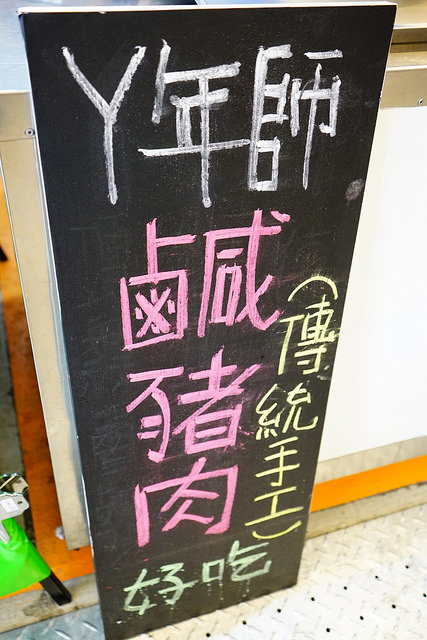 丫年師
鹹
豬
肉
(傳統手工)
好吃